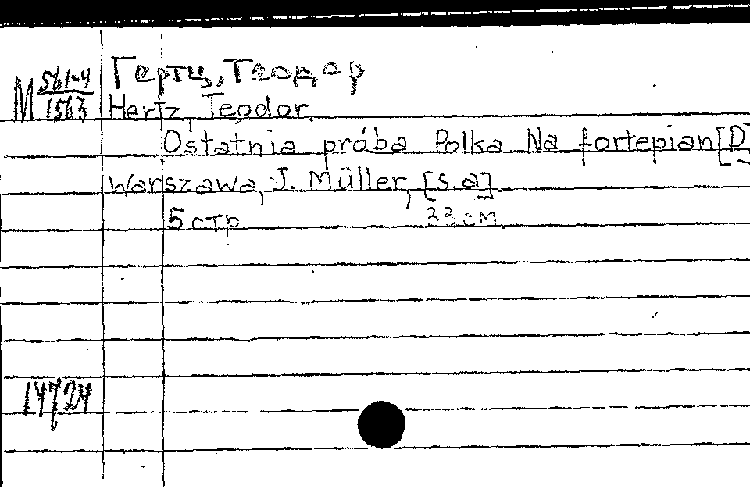 M 561-4/1563
Гертц, Теодор
Hertz, Teodor.
Ostatnia próba Polka Na fortepian [D
Warszawa, J. Müller, [s.a]
5 стр 33 см
14724